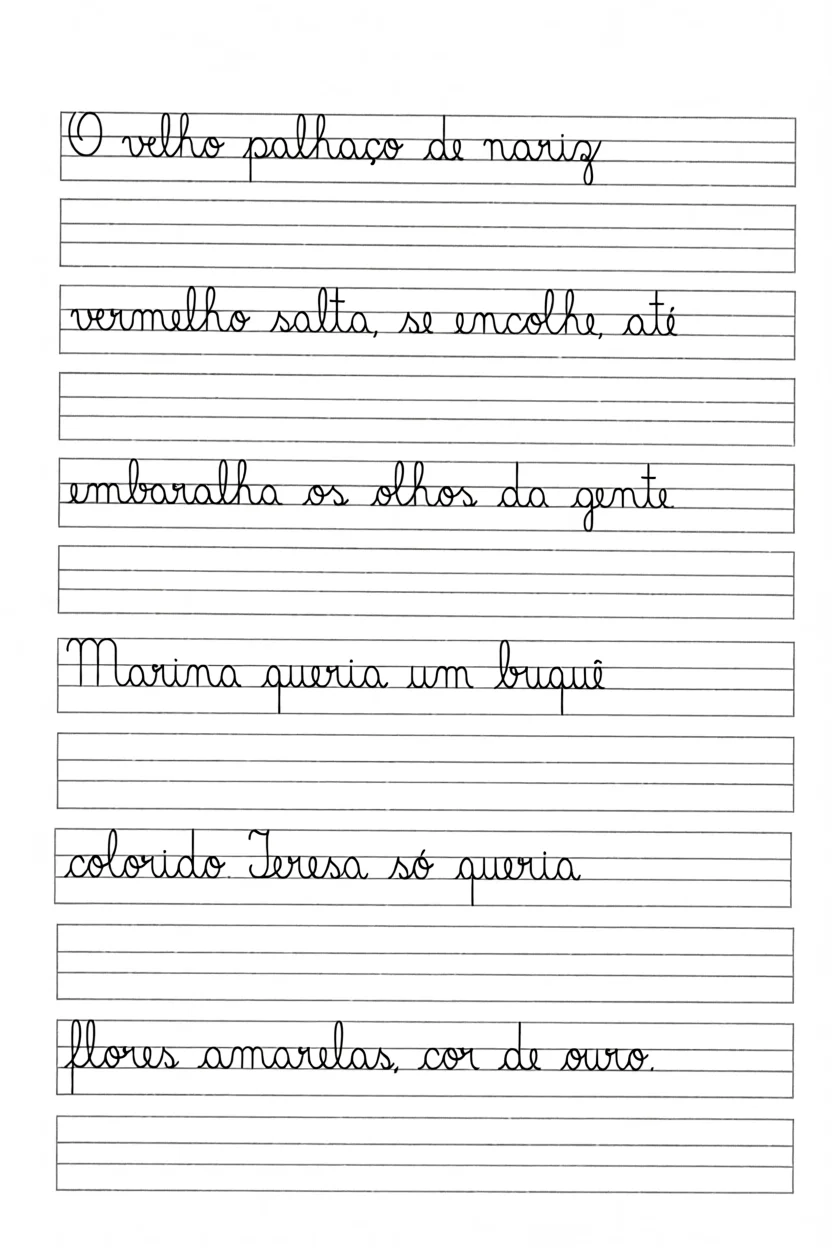 O velho palhaço de nariz
vermelho salta, se encolhe, até
embaralha os olhos da gente.
Marina queria um buquê
colorido. Teresa só queria
flores amarelas, cor de ouro.